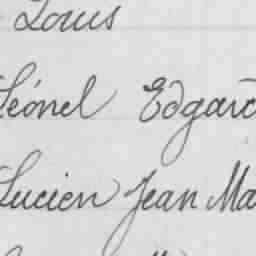 Louis
Léonel Edgard
Lucien Jean Ma